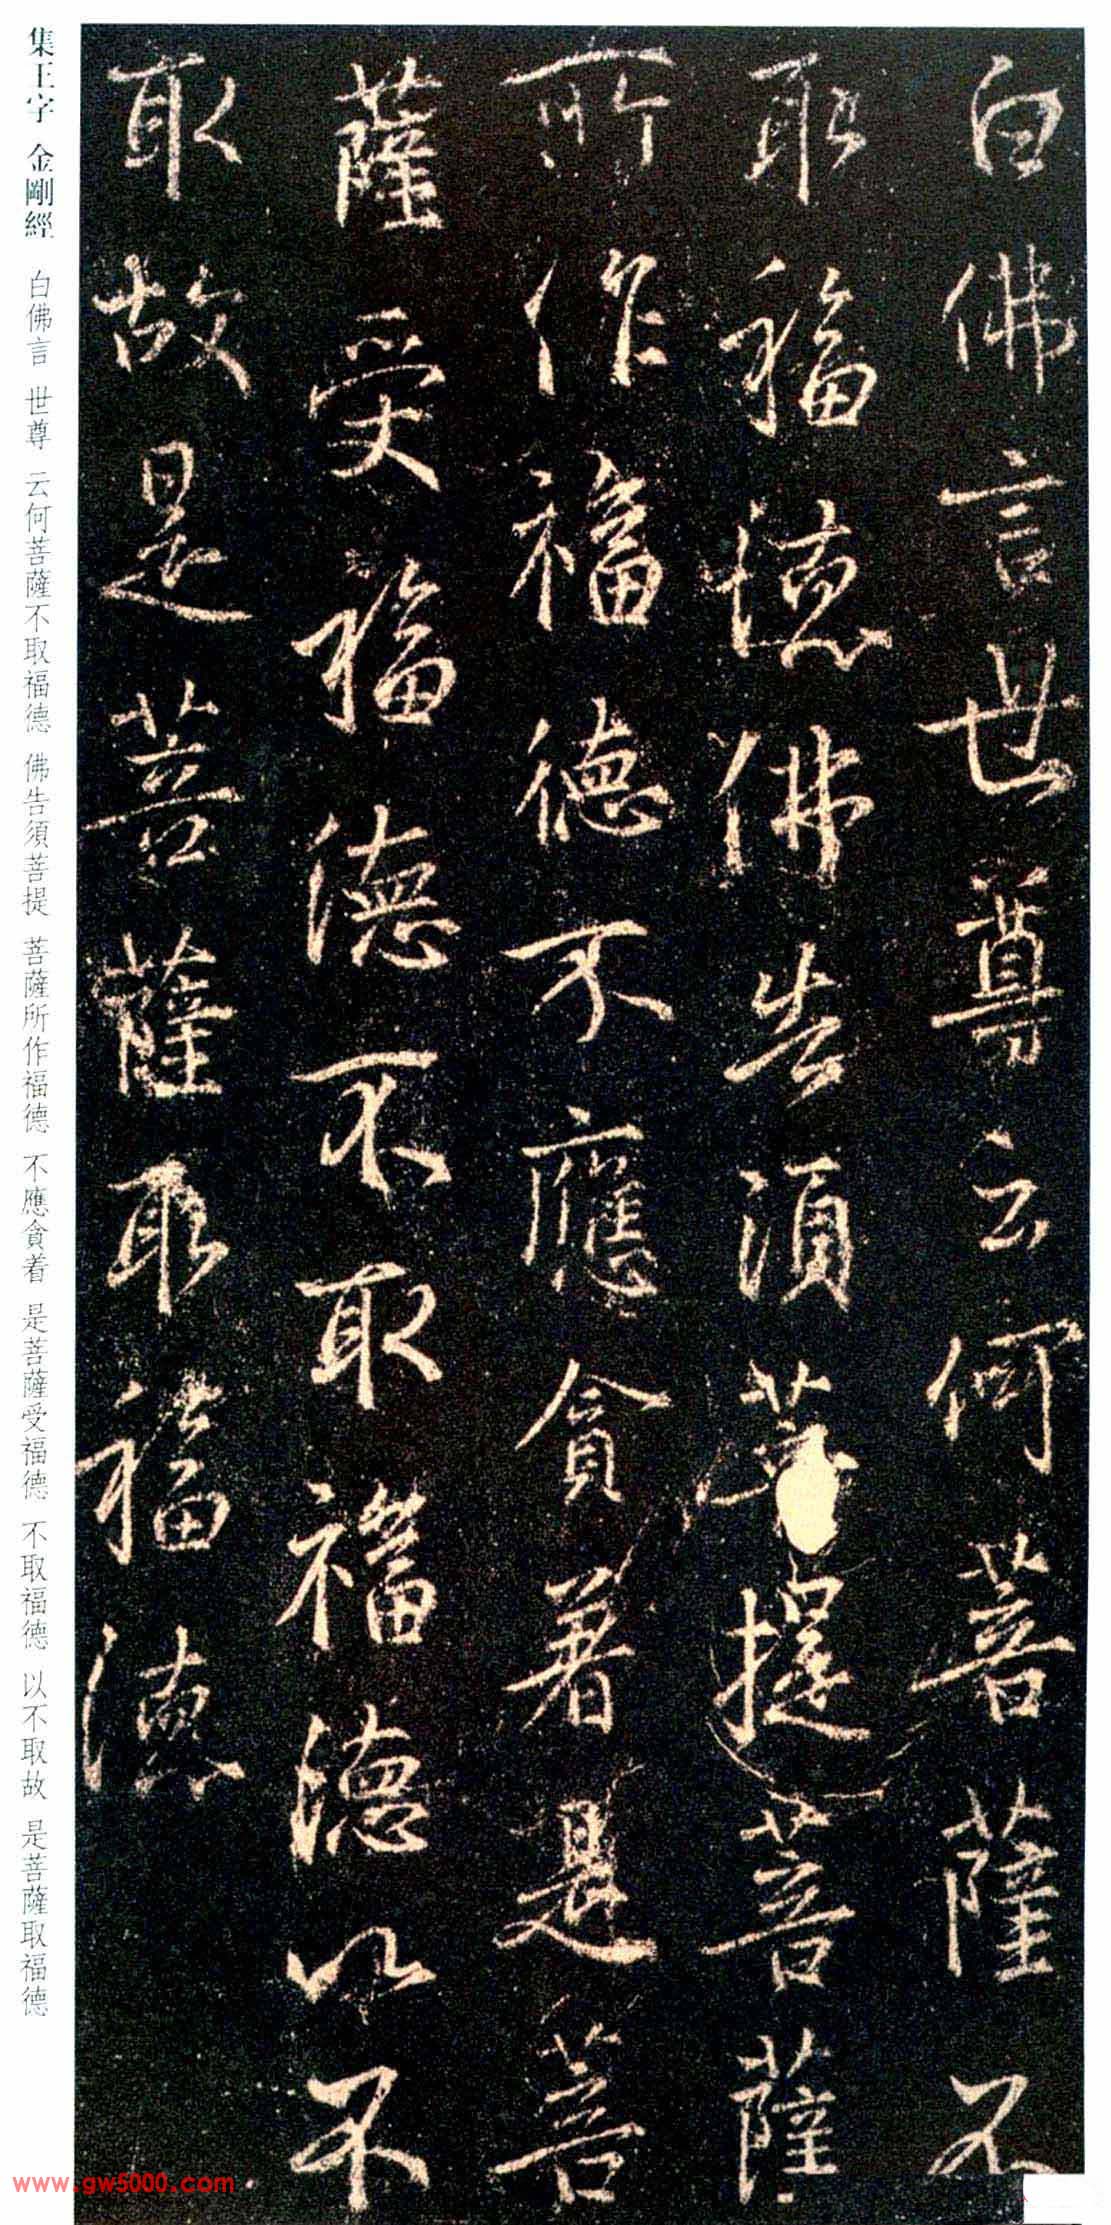 白佛言世尊云何菩薩不
取福德佛告須菩提菩薩
所作福德不應貪著是菩
薩受福德不取福德以不
取故是菩薩取福德
集王字 金剛經 白佛言 世尊 云何菩薩不取福德 佛告須菩提 菩薩所作福德 不應貪着 是菩薩受福德 不取福德 以不取故 是菩薩取福德
www.gw5000.com